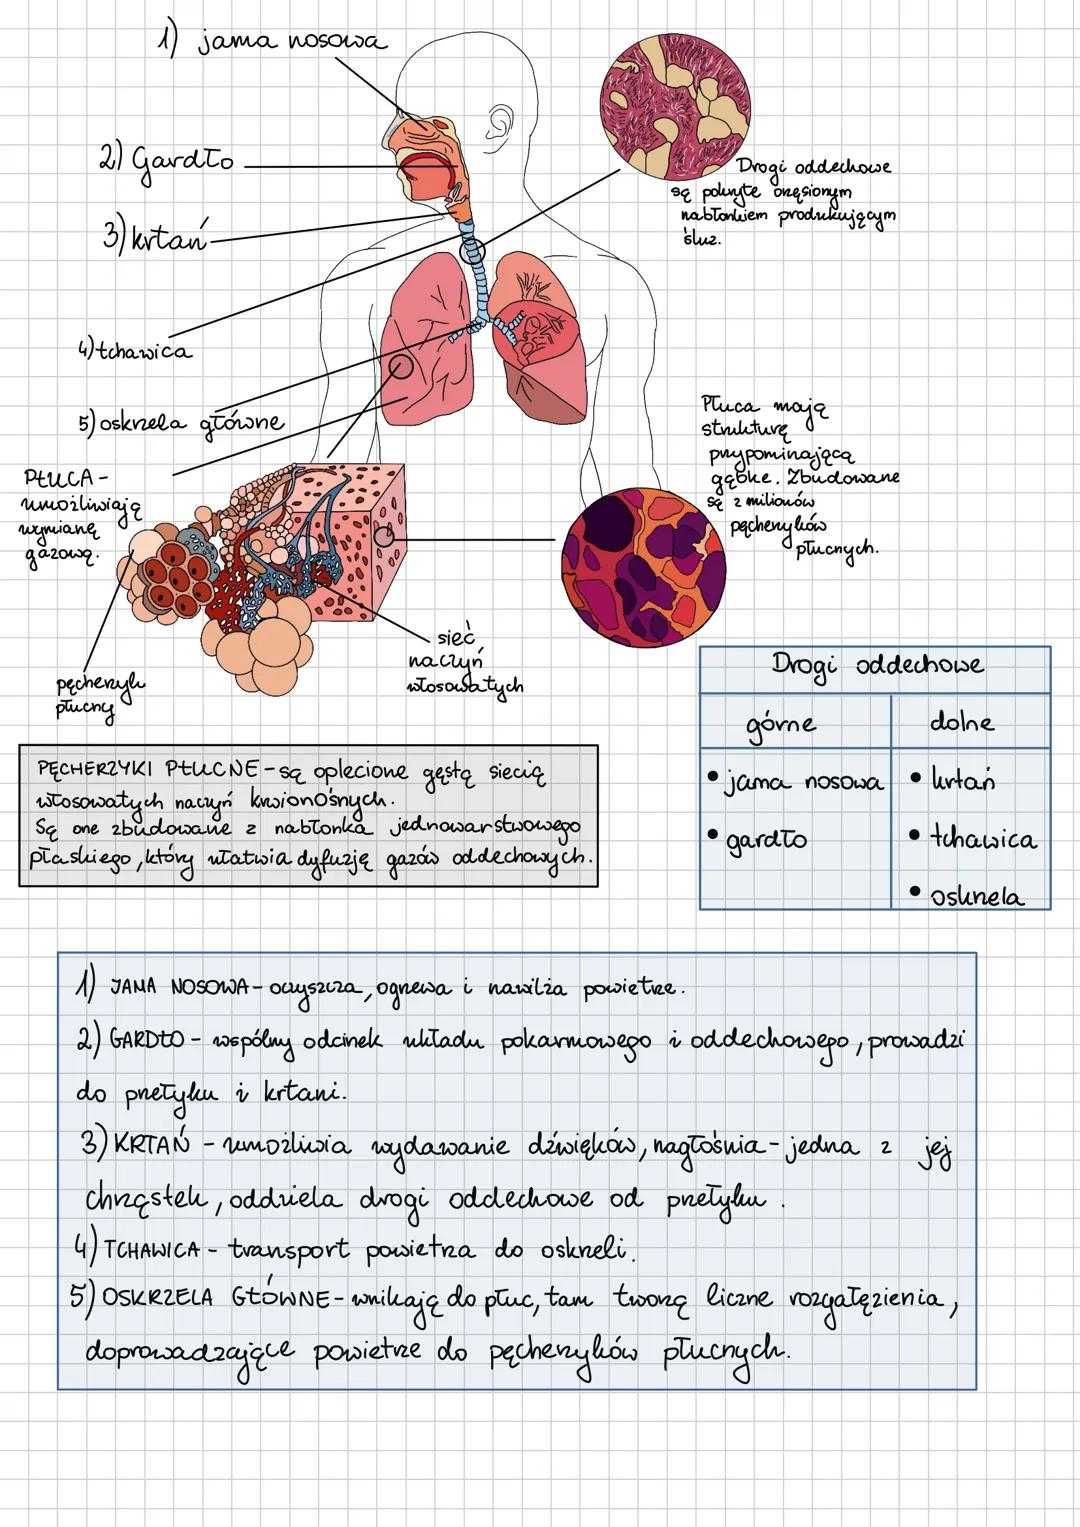 1) jama nosowa
2) Gardło
3) krtań
4) tchawica
5) oskrzela główne
PŁUCA -
umożliwiają
wymianę
gazową.
pęcherzyk
płucny
sieć
naczyń
włosowatych
Drogi oddechowe
są pokryte orzęsionym
nabłonkiem produkującym
śluz.
Płuca mają
strukturę
przypominającą
gąbkę. Zbudowane
są z milionów
pęcherzyków
płucnych.
PĘCHERZYKI PŁUCNE - są oplecione gęstą siecią
włosowatych naczyń krwionośnych.
Są one zbudowane z nabłonka jednowarstwowego
płaskiego, który ułatwia dyfuzję gazów oddechowych.
Drogi oddechowe
górne
dolne
• jama nosowa
• gardło
• krtań
• tchawica
• oskrzela
1) JAMA NOSOWA - oczyszcza, ogrzewa i nawilża powietrze.
2) GARDŁO - wspólny odcinek układu pokarmowego i oddechowego, prowadzi
do przełyku i krtani.
3) KRTAŃ - umożliwia wydawanie dźwięków, nagłośnia - jedna z jej
chrząstek, oddziela drogi oddechowe od przełyku.
4) TCHAWICA - transport powietrza do oskrzeli.
5) OSKRZELA GŁÓWNE - wnikają do płuc, tam tworzą liczne rozgałęzienia,
doprowadzające powietrze do pęcherzyków płucnych.